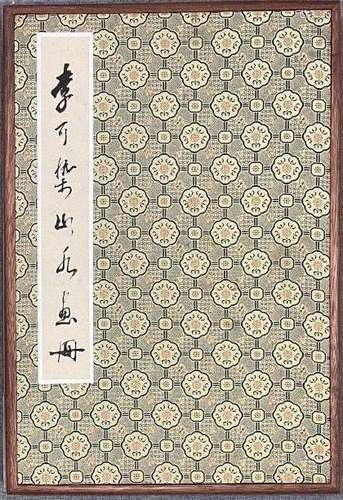 李可染山水画册